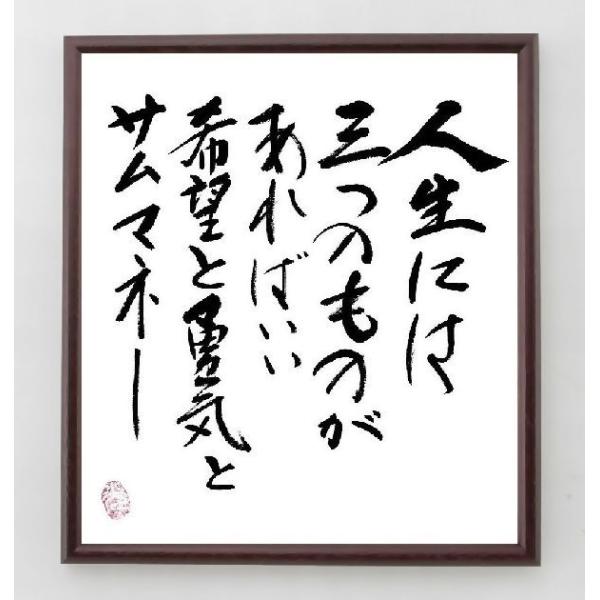 人生には
三つのものが
あればいい
希望と勇気と
サムマネー